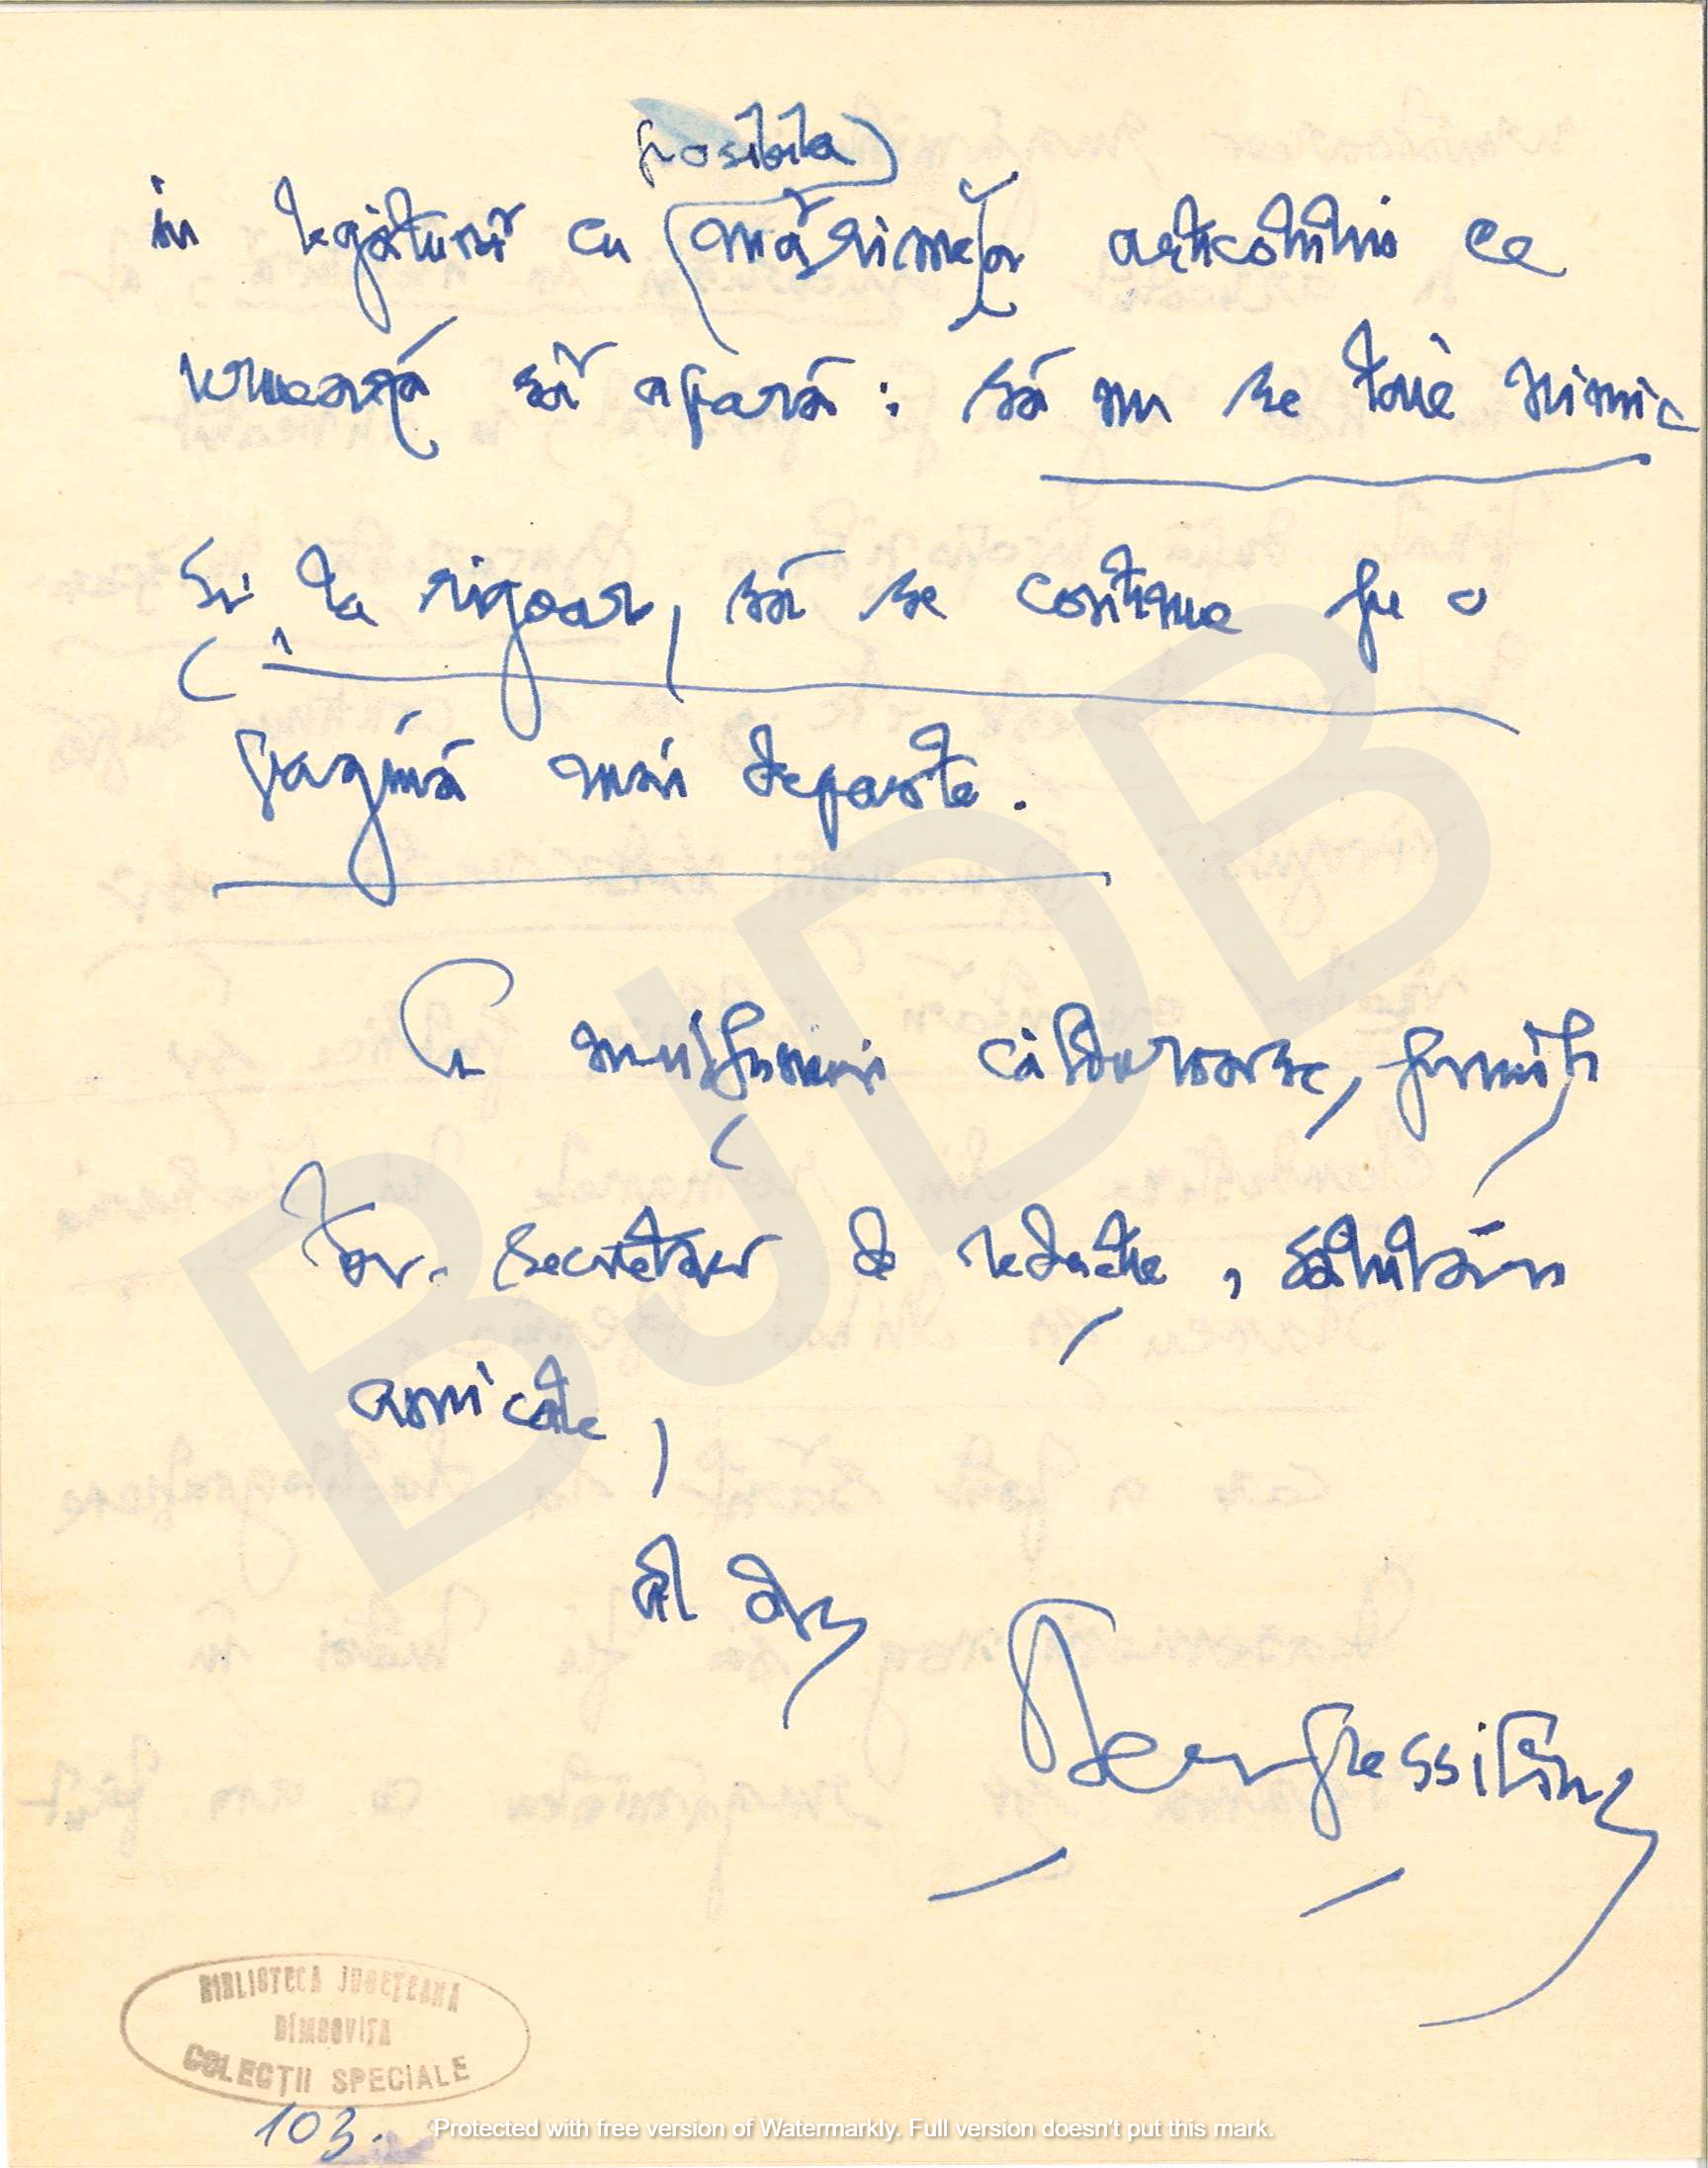 posibila
în legătură cu mărimea articolului ce
urmează să apară: să nu se taie nimic
Și, la rigoare, să se continue pe o
pagină mai departe.
Cu mulțumiri călduroase, primiți
tov. secretar de redacție, salutări
amicale,
al dv.
Perpessicius
BIBLIOTECA JUDEȚEANĂ
DÎMBOVIȚA
COLECȚII SPECIALE
103.
BJDB
Protected with free version of Watermarkly. Full version doesn't put this mark.